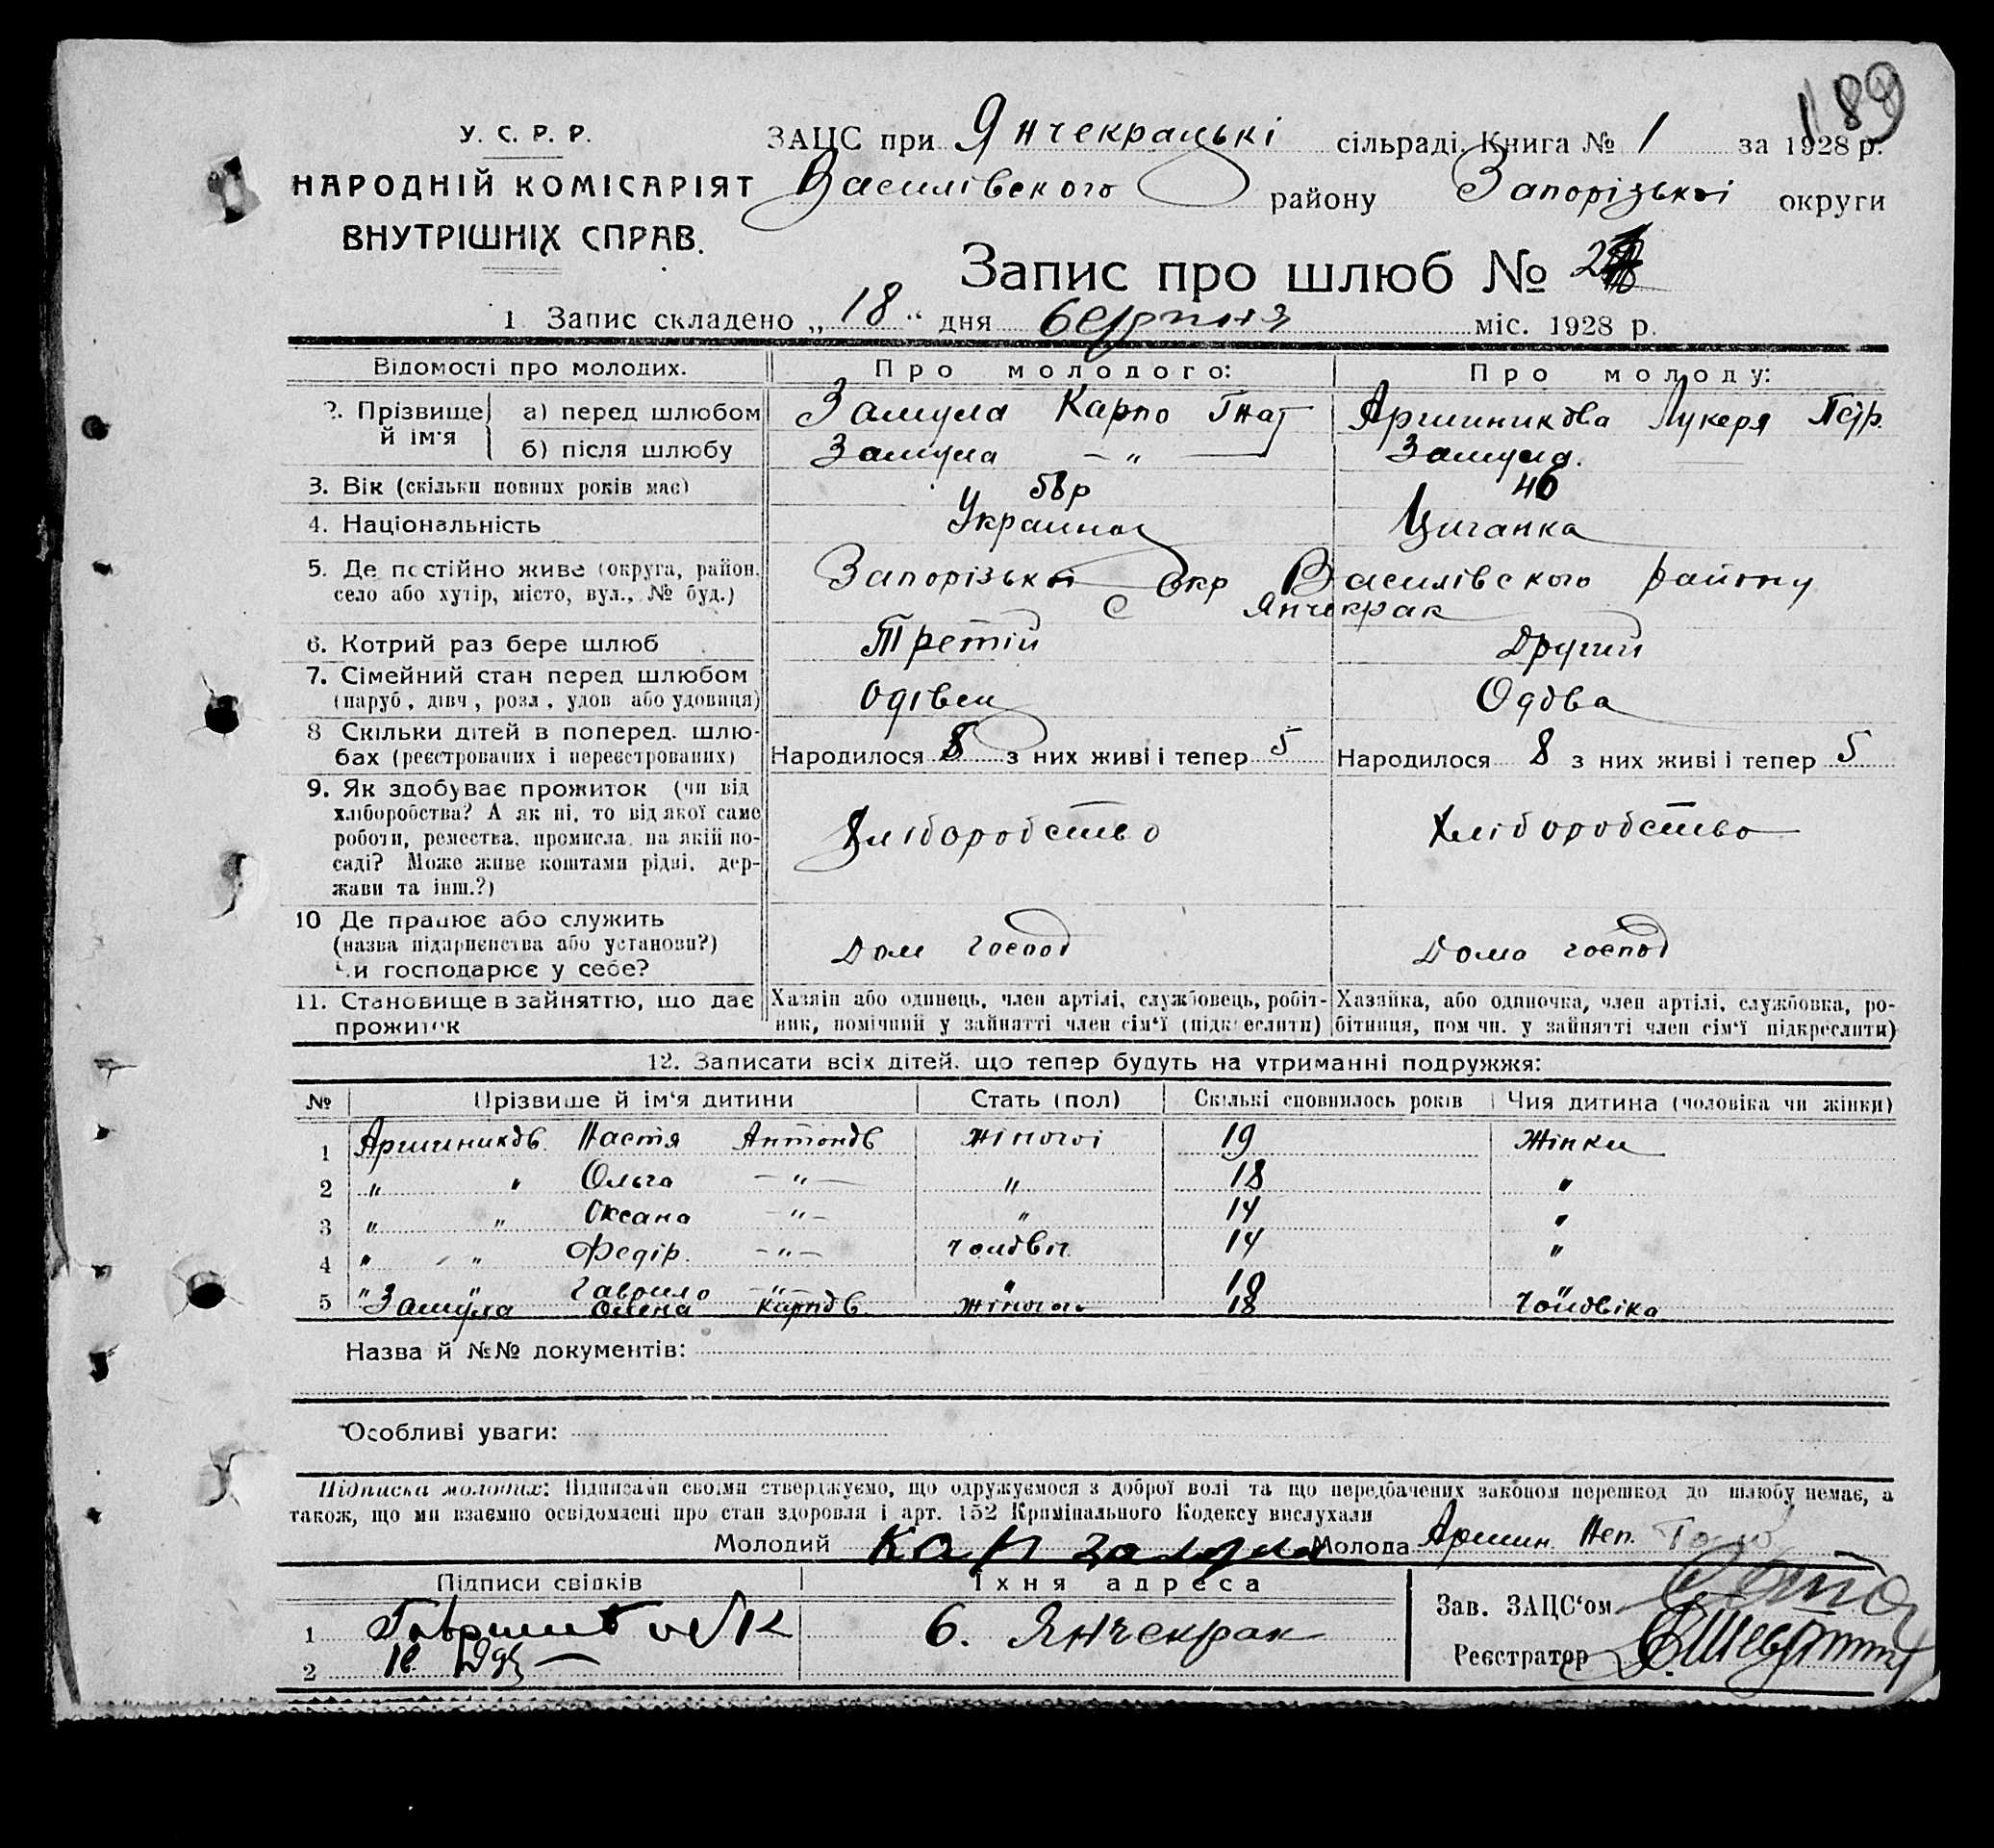 189
У. С. Р. Р.
НАРОДНІЙ КОМІСАРІЯТ
ВНУТРІШНІХ СПРАВ.
ЗАЦС при Янчекрацькі сільраді. Книга № 1 за 1928 р.
Василівского району Запорізької округи
Запис про шлюб №
1 Запис складено „18" дня серпня міс. 1928 р.
Відомості про молодих. Про молодого: Про молоду:
2. Прізвище й ім'я а) перед шлюбом Замула Карпо Гнат Аршиникова Лукеря Петр.
б) після шлюбу Замула — „ — Замула.
3. Вік (скільки повних років має) 58 р 46
4. Національність Украинец Циганка
5. Де постійно живе (округа, район, Запорізької Окр Василівского району
село або хутір, місто, вул., № буд.) С Янчекрак
6. Котрий раз бере шлюб Третій Другий
7. Сімейний стан перед шлюбом
(паруб, дівч, розл, удов або удовиця) Одівец Одова
8 Скільки дітей в поперед. шлю-
бах (реєстрованих і нереєстрованих) Народилося 8 з них живі і тепер 5 Народилося 8 з них живі і тепер 5
9. Як здобуває прожиток (чи від
хліборобства? А як ні, то від якої саме
роботи, ремества, промисла, на якій по- Хліборобство Хліборобство
саді? Може живе коштами рідні, дер-
жави та інш.?)
10 Де працює або служить
(назва підприємства або установи?) Дом господ Дома господ
Чи господарює у себе?
11. Становище в зайняттю, що дає Хазяїн або одинець, член артілі, службовець, робіт- Хазяйка, або одиночка, член артілі, службовка, ро-
прожиток ник, помічний у зайнятті член сім'ї (підкреслити) бітниця, помічн. у зайнятті член сім'ї підкреслити)
12. Записати всіх дітей, що тепер будуть на утриманні подружжя:
№ Прізвище й ім'я дитини Стать (пол) Скількі сповнилось років Чия дитина (чоловіка чи жінки)
1 Аршиников. Настя Антонов жіночої 19 Жінки
2 „ „ Ольга — „ — „ 18 „
3 „ „ Оксана — „ — „ 14 „
4 „ „ Федір. — „ — чоловіч 14 „
5 „ „ Гаврило „ „ 10 „
Замула Олена Карпов. жіночої 18 чоловіка
Назва й №№ документів:
Особливі уваги:
Підписка молодих: Підписами своїми стверджуємо, що одружуємося з доброї волі та що передбачених законом перешкод до шлюбу немає, а
також, що ми взаємно освідомлені про стан здоровля і арт. 152 Кримінального Кодексу вислухали
Молодий Кар Замула Молода Аршин Неп.
Підписи свідків Їхня адреса
Зав. ЗАЦС'ом
1 с. Янчекрак
Реєстратор
2